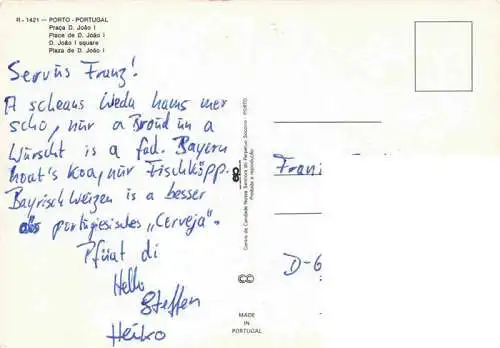 R - 1421 — PORTO - PORTUGAL
Praça D. João I
Place de D. João I
D. João I square
Plaza de D. João I
Servus Franz!
A scheans Weda hams mer
scho, nur a Broud un a
Wurscht is a fad. Bayern
hoat's koa, nur Fischköpp.
Bayrisch Weizen is a besser
als portugiesisches „Cerveja".
Pfüat di
Hello
Steffen
Heiko
Centro de Caridade Nossa Senhora do Perpétuo Socorro - PORTO
Proibida a reprodução
MADE IN
PORTUGAL
Franz
D-6